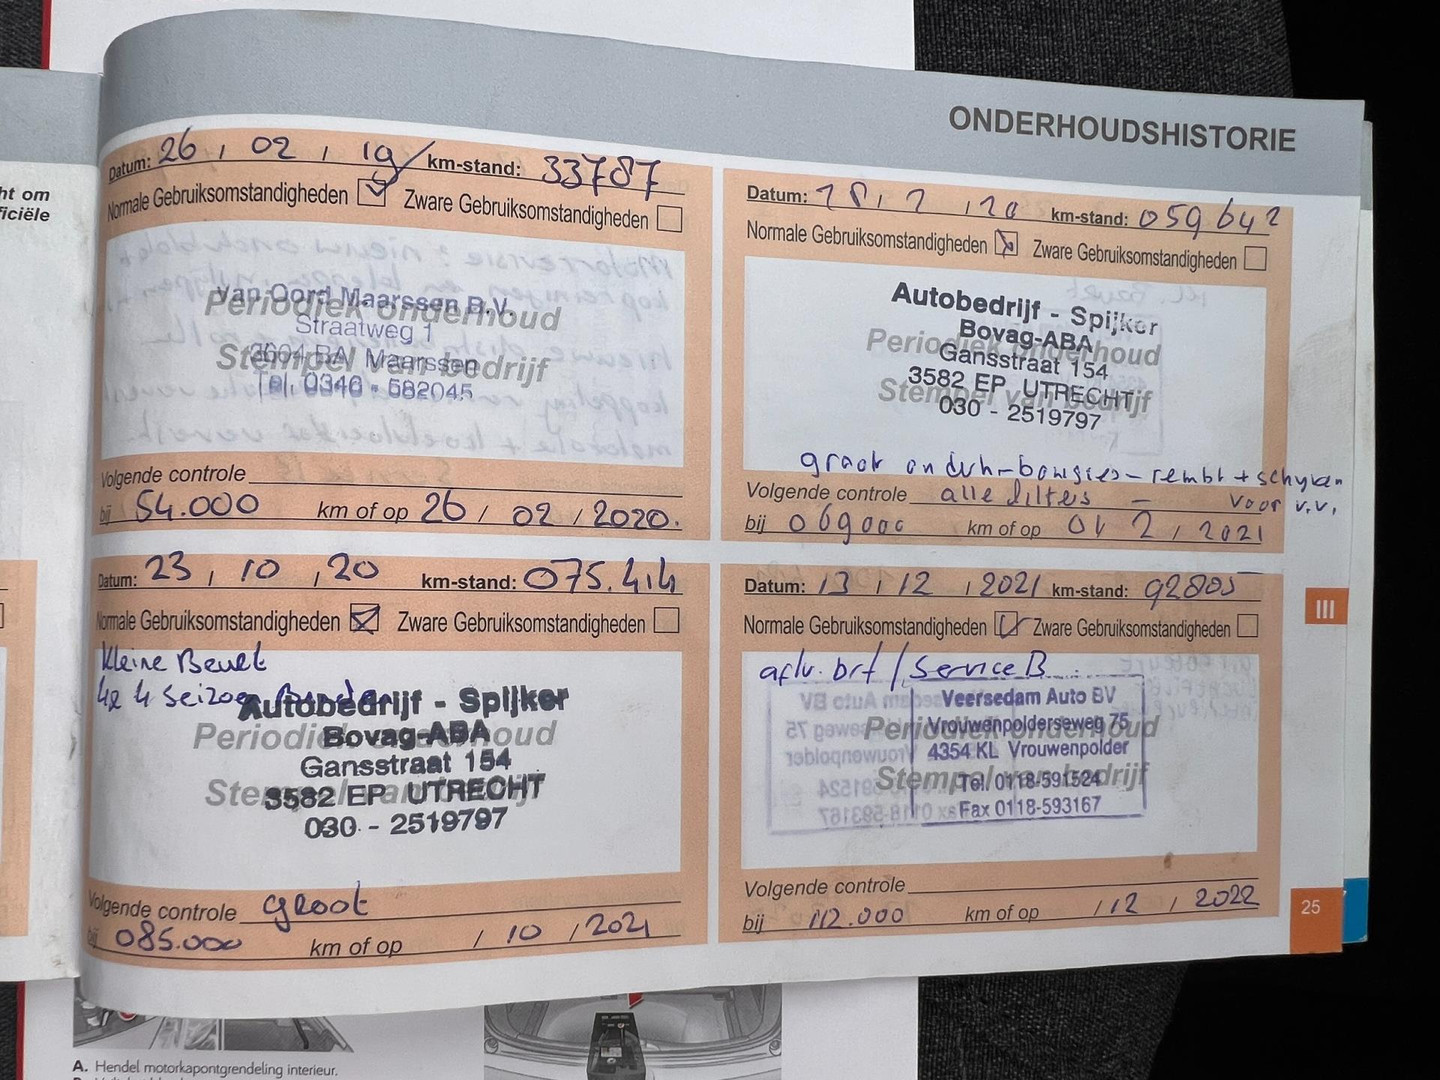 ht om
ficiële
ONDERHOUDSHISTORIE
Datum: 26 / 02 / 19 km-stand: 33787
Normale Gebruiksomstandigheden Zware Gebruiksomstandigheden
Van Oord Maarssen B.V.
Periodiek onderhoud
Straatweg 1
Maarssen
Stempel van bedrijf
Tel. 0346 - 582045
Volgende controle
bij 54.000 km of op 26 / 02 / 2020.
Datum: km-stand: 059642
Normale Gebruiksomstandigheden Zware Gebruiksomstandigheden
Autobedrijf - Spijker
Bovag-ABA
Periodiek onderhoud
Gansstraat 154
3582 EP UTRECHT
Stempel van bedrijf
030 - 2519797
groot onderh - bougies - rembl + schijven
Volgende controle alle filters - voor v.v.
bij 069000 km of op 01 2 / 2021
Datum: 23 / 10 / 20 km-stand: 075.414
Normale Gebruiksomstandigheden Zware Gebruiksomstandigheden
Kleine Beurt
4x 4 Seizoen Banden
Autobedrijf - Spijker
Bovag-ABA
Periodiek onderhoud
Gansstraat 154
3582 EP UTRECHT
Stempel van bedrijf
030 - 2519797
Volgende controle groot
bij 085.000 km of op / 10 / 2021
Datum: 13 / 12 / 2021 km-stand: 92805
Normale Gebruiksomstandigheden Zware Gebruiksomstandigheden
aflv. brf / Service B
Veersedam Auto BV
Vrouwenpolderseweg 75
Periodiek onderhoud
4354 KL Vrouwenpolder
Stempel van bedrijf
Tel. 0118-591524
Fax 0118-593167
Volgende controle
bij 112.000 km of op / 12 / 2022
III
25
A. Hendel motorkapontgrendeling interieur.